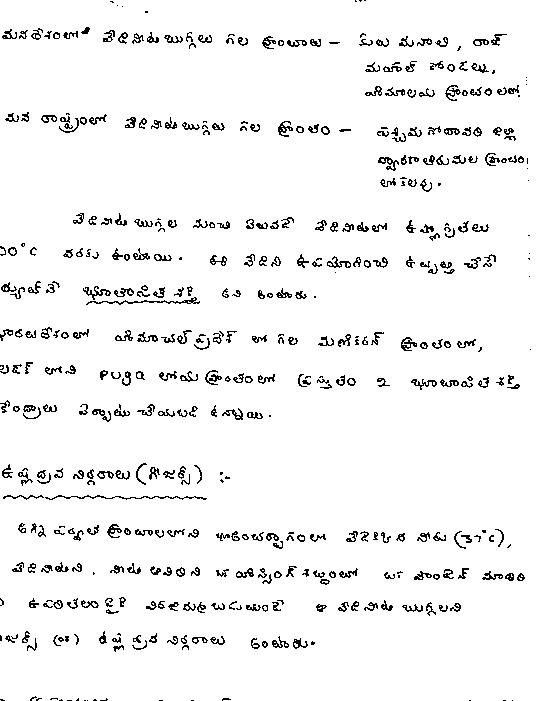 మనదేశంలో వేడినీటి బుగ్గలు గల ప్రాంతాలు - కులు మనాలి, రాజ్
మహల్ కొండలు,
హిమాలయ ప్రాంతంలో
మన రాష్ట్రంలో వేడినీటి బుగ్గలు గల ప్రాంతం - పశ్చిమ గోదావరి జిల్లా
ద్వారకా తిరుమల ప్రాంతం
లో కలదు.
వేడినీటి బుగ్గల నుంచి వెలువడే వేడినీటిలో ఉష్ణోగ్రతలు
00°C వరకు ఉంటాయి. ఈ వేడిని ఉపయోగించి ఉత్పత్తి చేసే
భూతాపిత శక్తి అని అంటారు.
భారతదేశంలో హిమాచల్ ప్రదేశ్ లో గల మణికరన్ ప్రాంతంలో,
లోని Puga లోయ ప్రాంతంలో ప్రస్తుతం 2 భూతాపిత శక్తి
కేంద్రాలు ఏర్పాటు చేయబడి ఉన్నాయి.
ఉష్ణ ద్రవ నిర్గరాలు (గీజర్స్) :-
అగ్ని పర్వత ప్రాంతాలలోని భూఅంతర్భాగంలో వేడెక్కిన నీరు (37°C),
వేడినీటిని, నీటి ఆవిరిని శబ్దంలో ఒక ఫౌంటెన్ మాదిరి
ఉపరితలంపైకి ఈ వేడినీటి బుగ్గలని
(లేదా) ఉష్ణ ద్రవ నిర్గరాలు అంటారు.